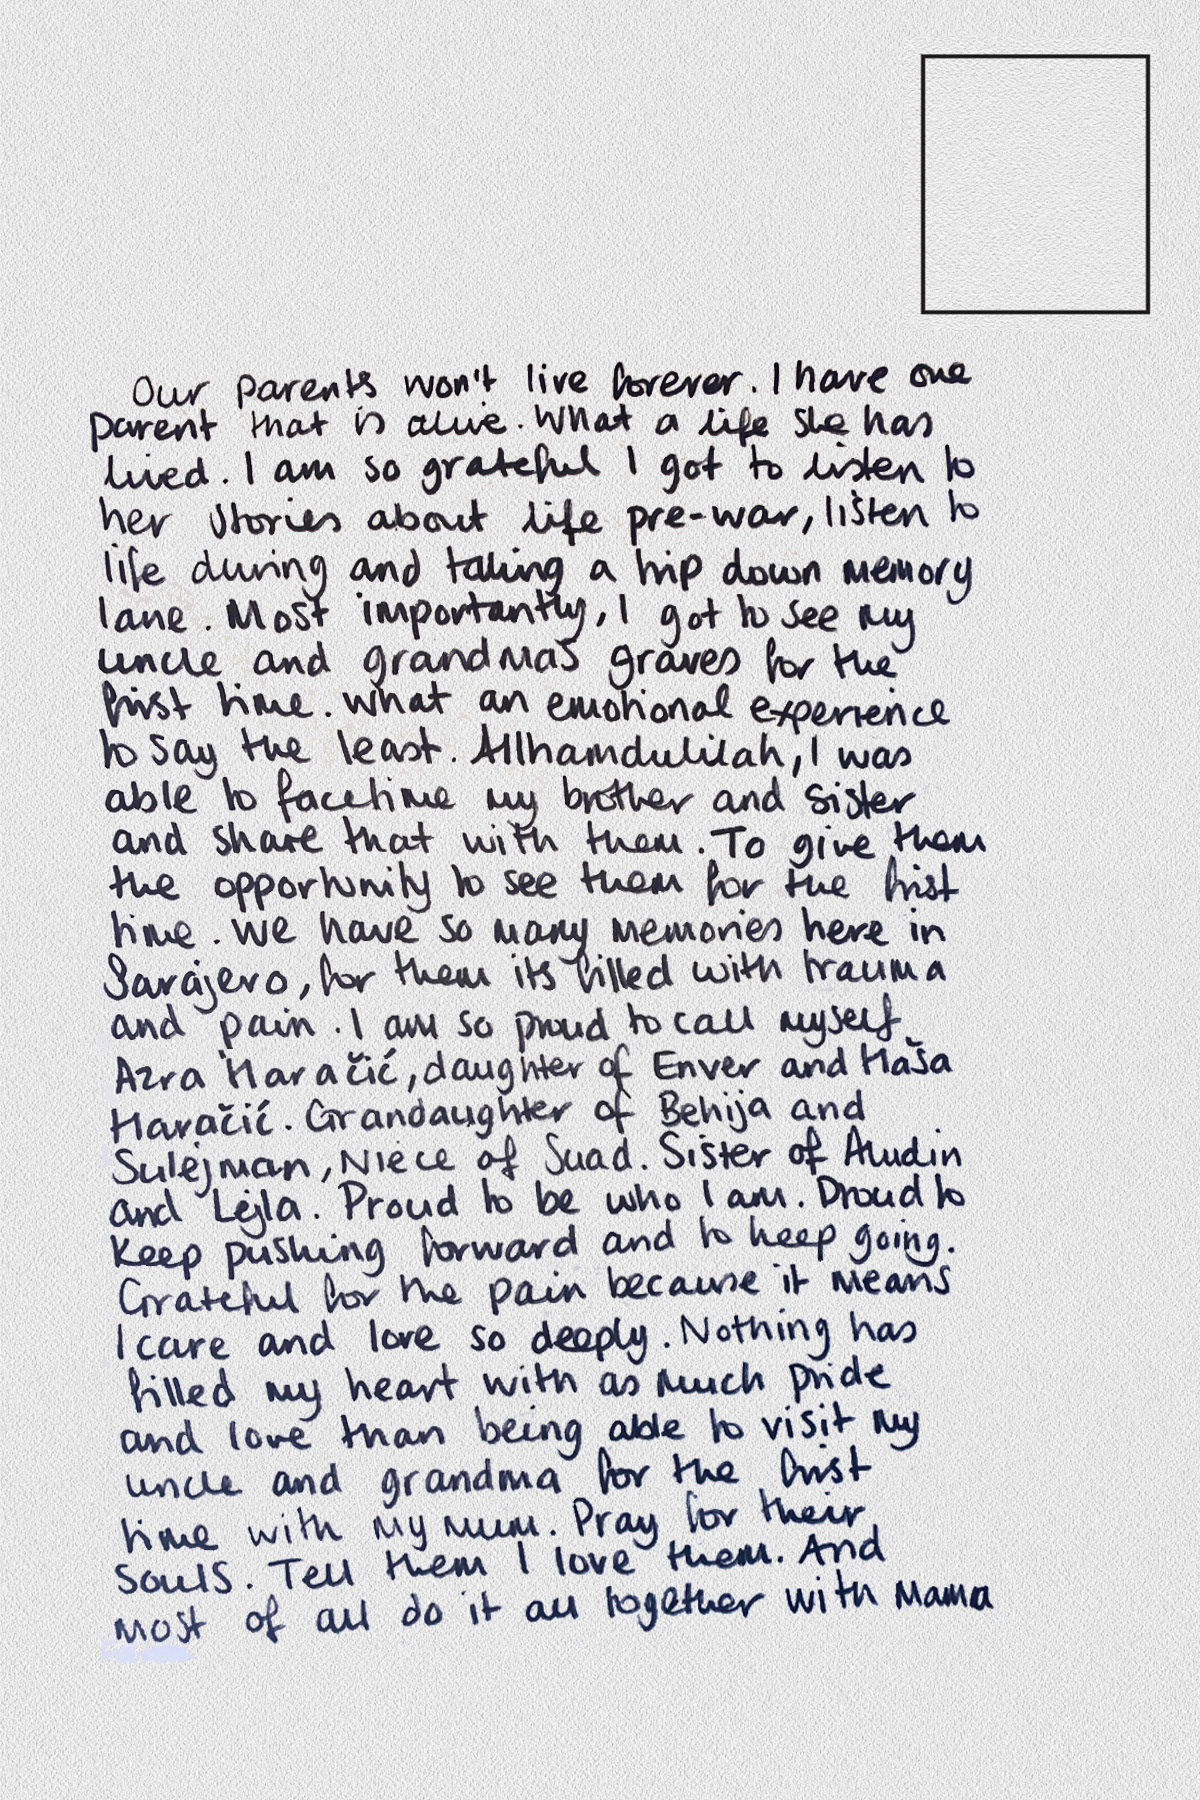 Our parents won't live forever. I have one
parent that is alive. What a life she has
lived. I am so grateful I got to listen to
her stories about life pre-war, listen to
life during and taking a trip down memory
lane. Most importantly, I got to see my
uncle and grandmas graves for the
first time. What an emotional experience
to say the least. Allhamdulilah, I was
able to facetime my brother and sister
and share that with them. To give them
the opportunity to see them for the first
time. We have so many memories here in
Sarajevo, for them its filled with trauma
and pain. I am so proud to call myself
Azra Haračić, daughter of Enver and Haša
Haračić. Grandaughter of Behija and
Sulejman, Niece of Suad. Sister of Aludin
and Lejla. Proud to be who I am. Proud to
keep pushing forward and to keep going.
Grateful for the pain because it means
I care and love so deeply. Nothing has
filled my heart with as much pride
and love than being able to visit my
uncle and grandma for the first
time with my mum. Pray for their
souls. Tell them I love them. And
most of all do it all together with Mama